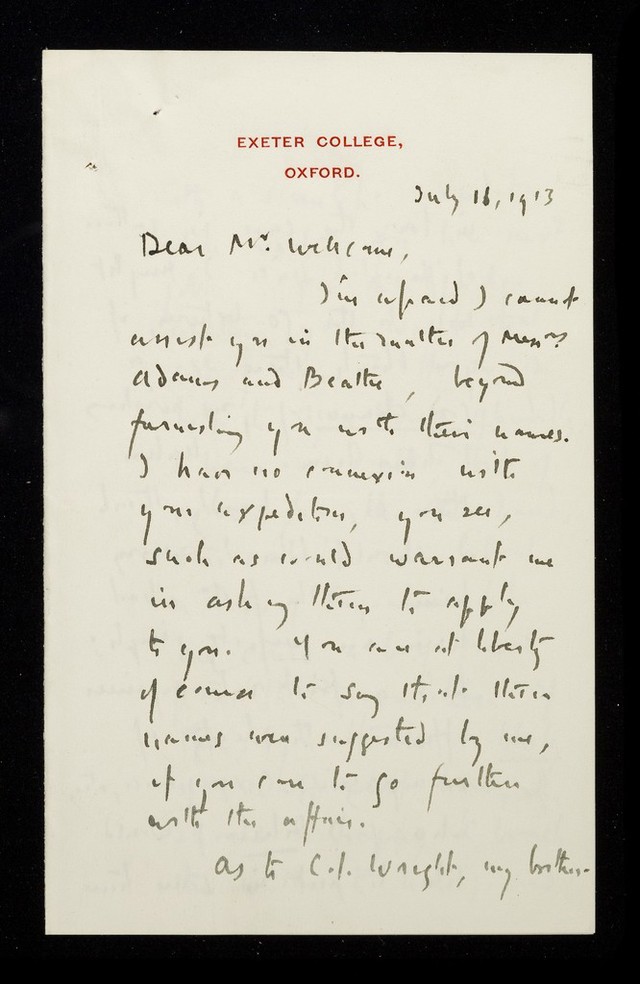 EXETER COLLEGE,
OXFORD.
July 18, 1913
Dear Mr. Wellcome,
I'm afraid I cannot
assist you in the matter of Messrs
Adams and Beattie, beyond
furnishing you with their names.
I have no connexion with
your expedition, you see,
such as would warrant me
in asking them to apply
to you. You are at liberty
of course to say that their
names were suggested by me,
if you care to go further
with the affair.
As to C.S. Wright, my brother-